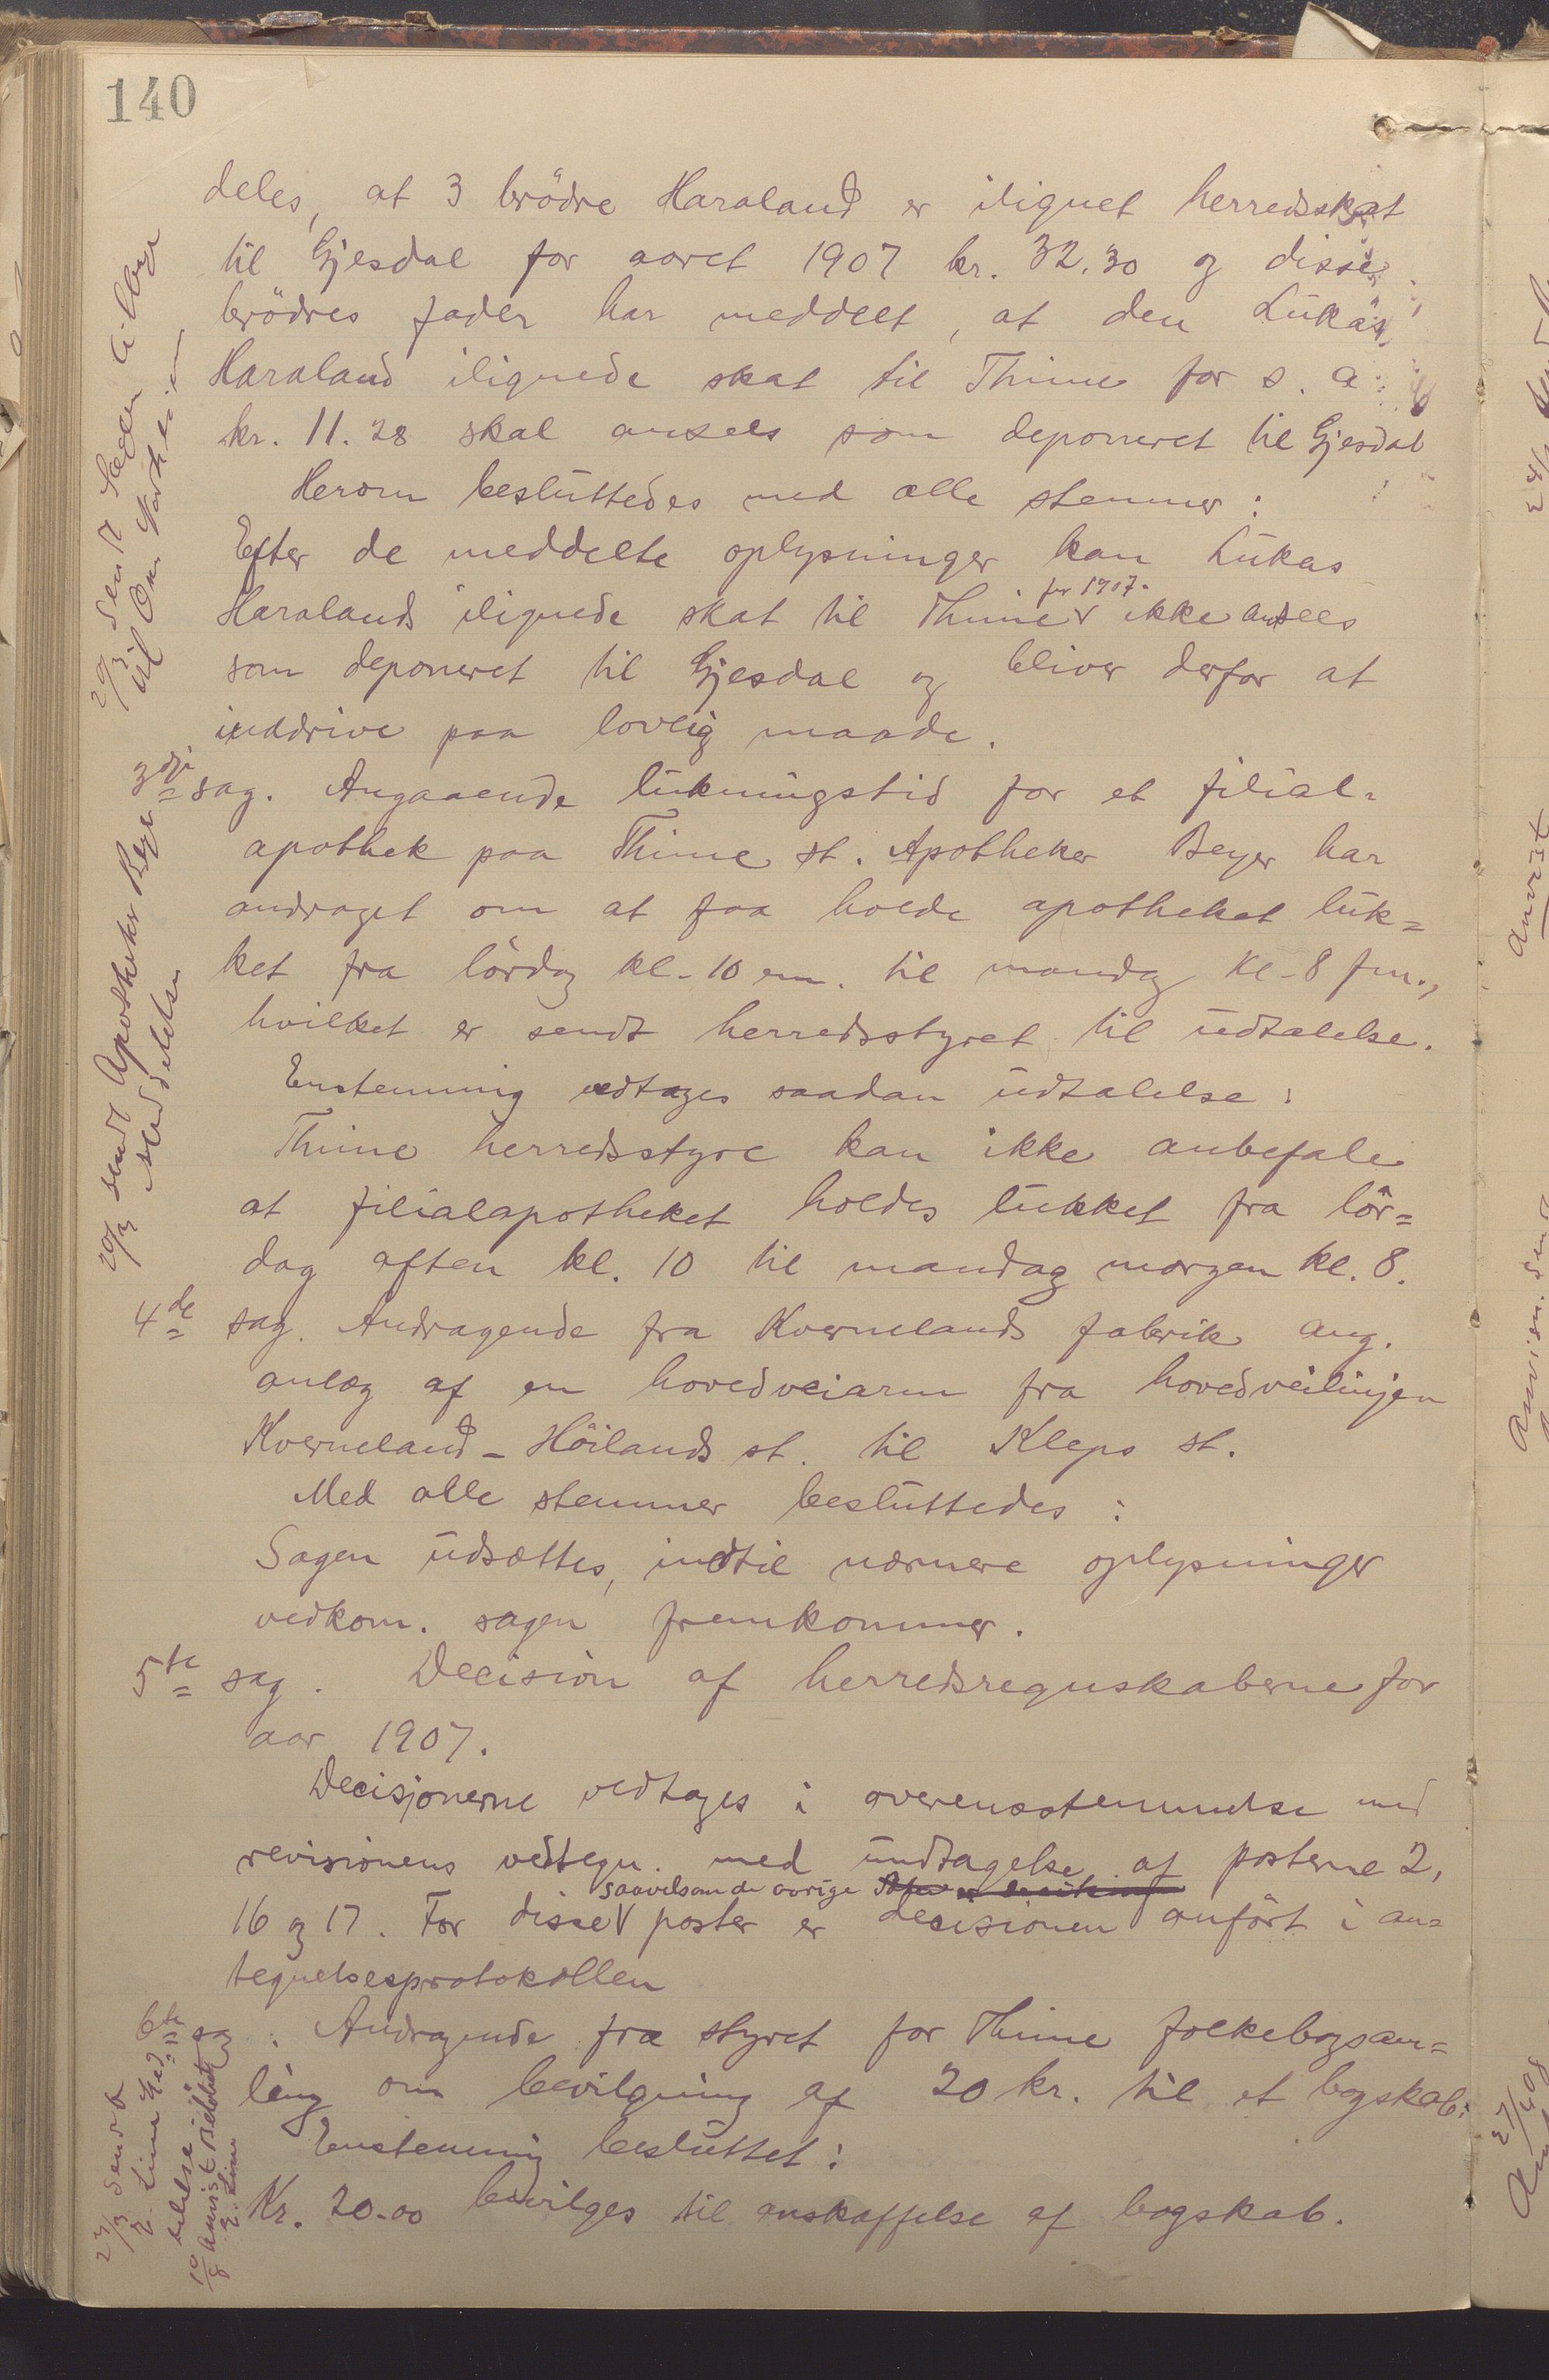 140
deles, at 3 brödre Haraland er ilignet herredsskat
til Gjesdal for aaret 1907 kr. 32.30 og disse
brödres fader har meddelt, at den Lukas
Haraland ilignede skat til Thime for s. a.
kr. 11.28 skal ansees som deponeret til Gjesdal
Herom besluttedes med alle stemmer:
Efter de meddelte oplysninger kan Lukas
for 1907.
Haralands ilignede skat til Thime V ikke ansees
som deponeret til Gjesdal og bliver derfor at
inddrive paa lovlig maade.
20/3 sendt sagen tilbage
til
3dje sag. Angaaende lukningstid for et filial=
apothek paa Thime st. Apotheker Beyer har
andraget om at faa holde apotheket luk=
ket fra lördag kl. 10 em. til mandag kl. 8 fm.,
hvilket er sendt herredsstyret til udtalelse.
Enstemmig vedtages saadan udtalelse:
Thime herredsstyre kan ikke anbefale
at filialapotheket holdes lukket fra lör=
dag aften kl. 10 til mandag morgen kl. 8.
20/3 sendt Apotheker Beyer
Meddelelse
4de sag. Andragende fra Kvernelands fabrik ang.
anlæg af en hovedveiarm fra hovedveilinjen
Kverneland - Höilands st. til Kleps st.
Med alle stemmer besluttedes:
Sagen udsættes, indtil nærmere oplysninger
vedkom. sagen fremkommer.
5te sag. Decision af herredsregnskaberne for
aar 1907.
Decisjonerne vedtages i overensstemmelse med
revisionens vedtegn. med undtagelse af posterne 2,
saavelsom de övrige
16 og 17. For disse V poster er decisionen anfört i an=
tegnelsesprotokollen
6te sag. Andragende fra styret for Thime folkebogsam=
ling om bevilgning af 20 kr. til et bogskab.
Enstemmig besluttet:
Kr. 20.00 bevilges til anskaffelse af bogskab.
23/3 sendt
E. Lima Med=
delelse
10/8 anvist
E. Lima